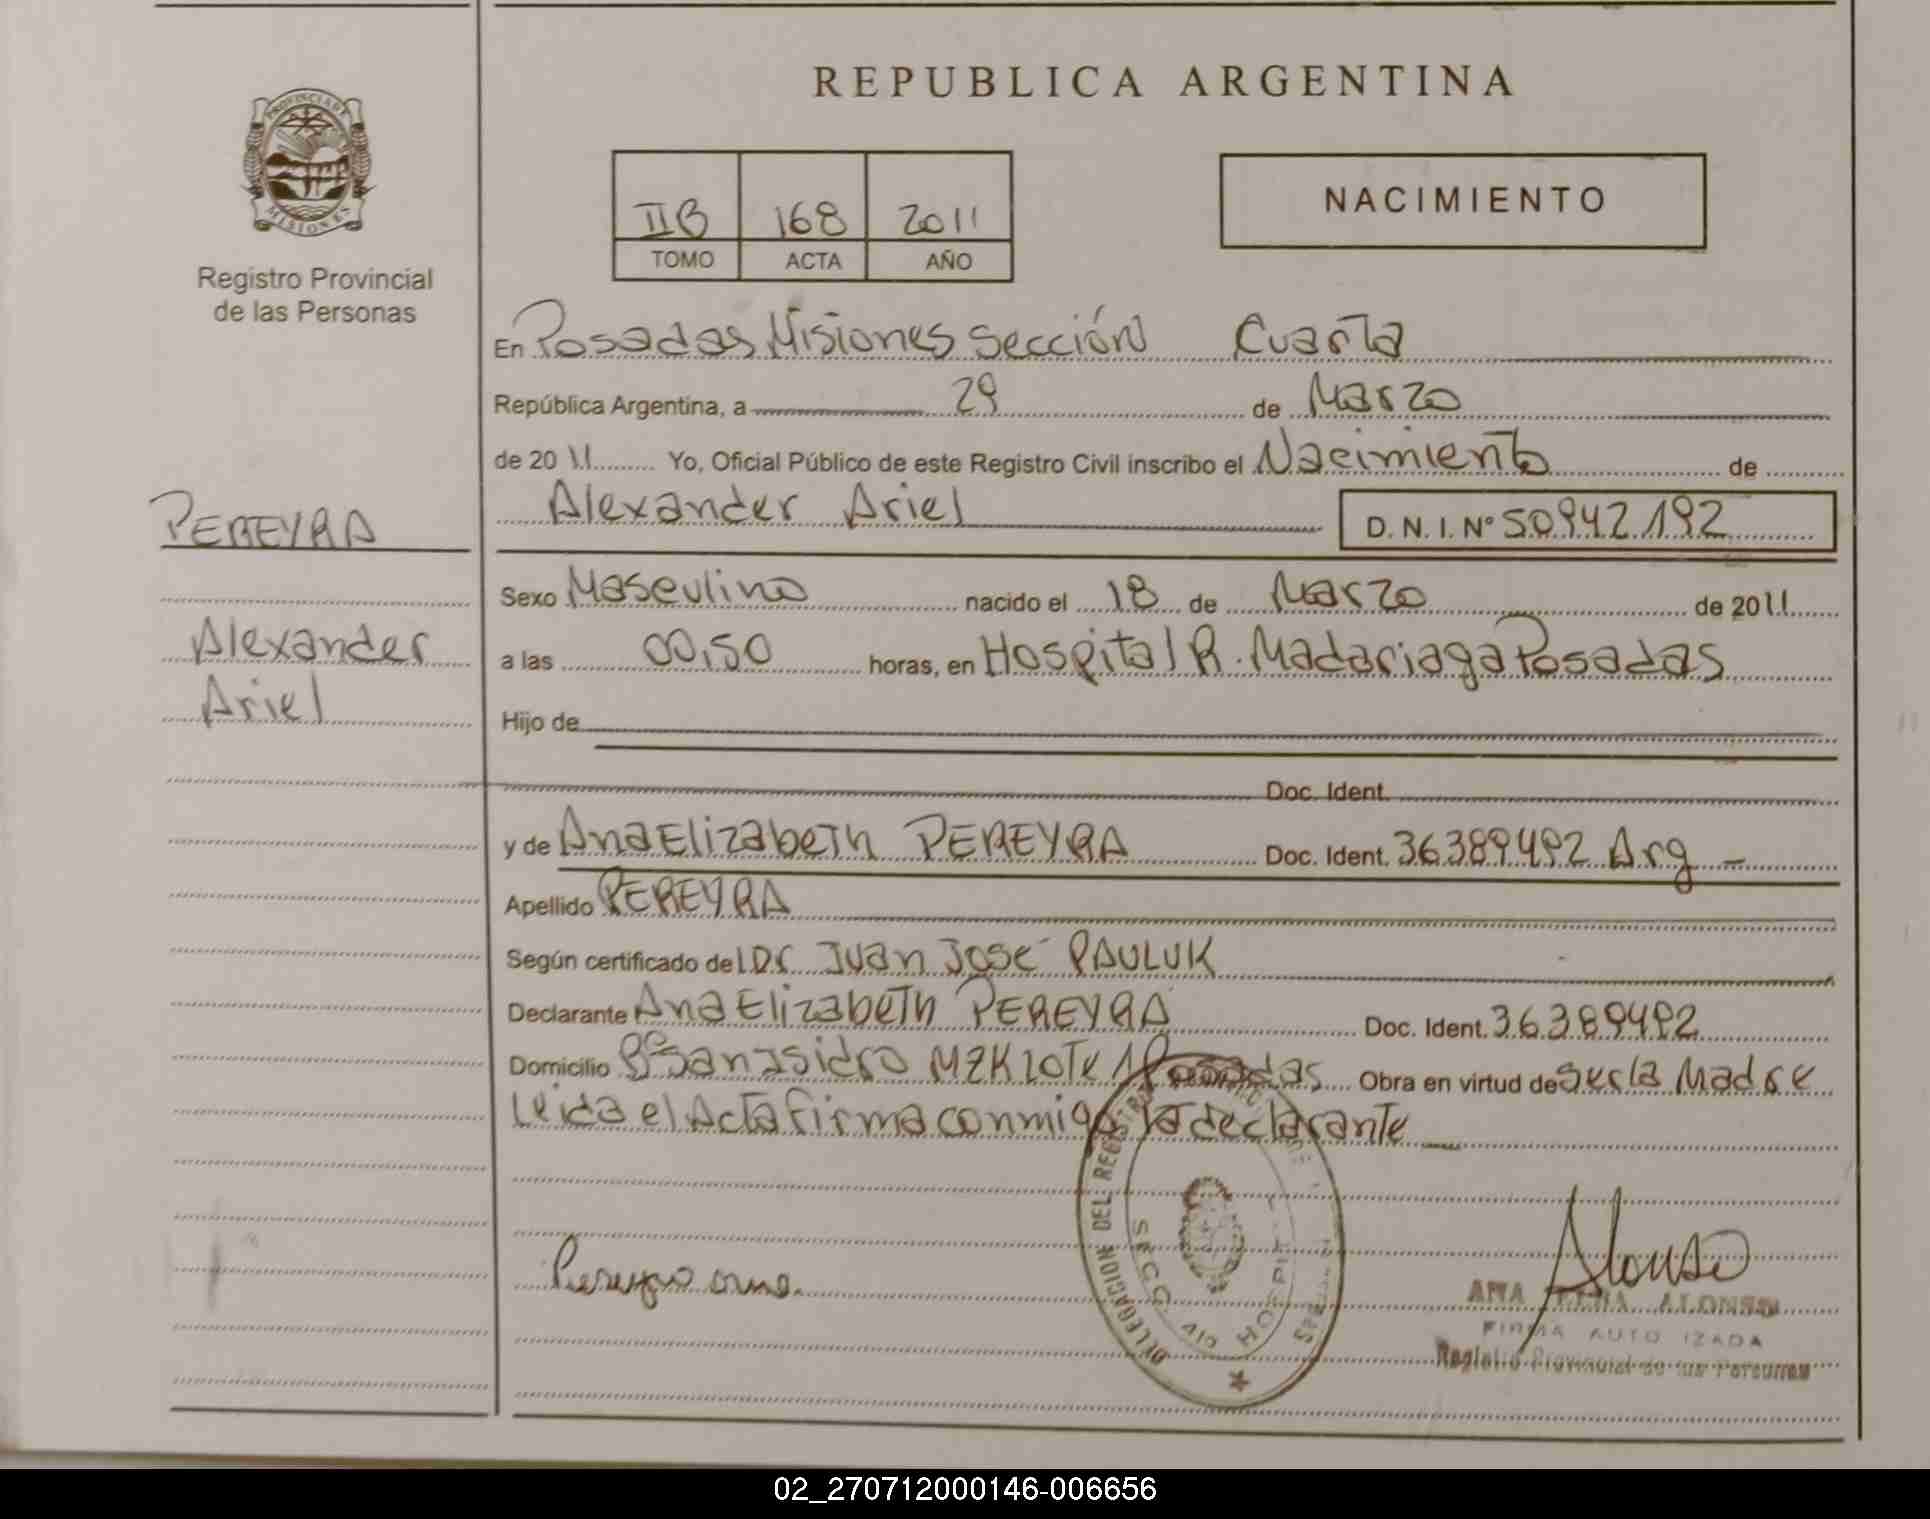 REPUBLICA ARGENTINA
PROVINCIA DE
MISIONES
Registro Provincial
de las Personas
IIB 168 2011
TOMO ACTA AÑO
NACIMIENTO
En Posadas Misiones Sección Cuarta
República Argentina, a 29 de Marzo
de 2011 Yo, Oficial Público de este Registro Civil inscribo el Nacimiento de
PEREYRA
Alexander Ariel D.N.I. N° 50942192
Sexo Masculino nacido el 18 de Marzo de 2011
Alexander
Ariel
a las 00,50 horas, en Hospital R. Madariaga Posadas
Hijo de
Doc. Ident.
y de Ana Elizabeth PEREYRA Doc. Ident. 36389492 Arg –
Apellido PEREYRA
Según certificado del Dr Juan José PAULUK
Declarante Ana Elizabeth PEREYRA Doc. Ident. 36389492
Domicilio B° San Isidro MZK LOTE Posadas Obra en virtud de Ser la Madre
Leida el Acta firma conmigo la declarante
DELEGACION DEL REGISTRO
SECC. 4ta HOSPITAL
Pereyra ana.
Alonso
ANA ALONSO
FIRMA AUTORIZADA
Registro Provincial de las Personas
02_270712000146-006656